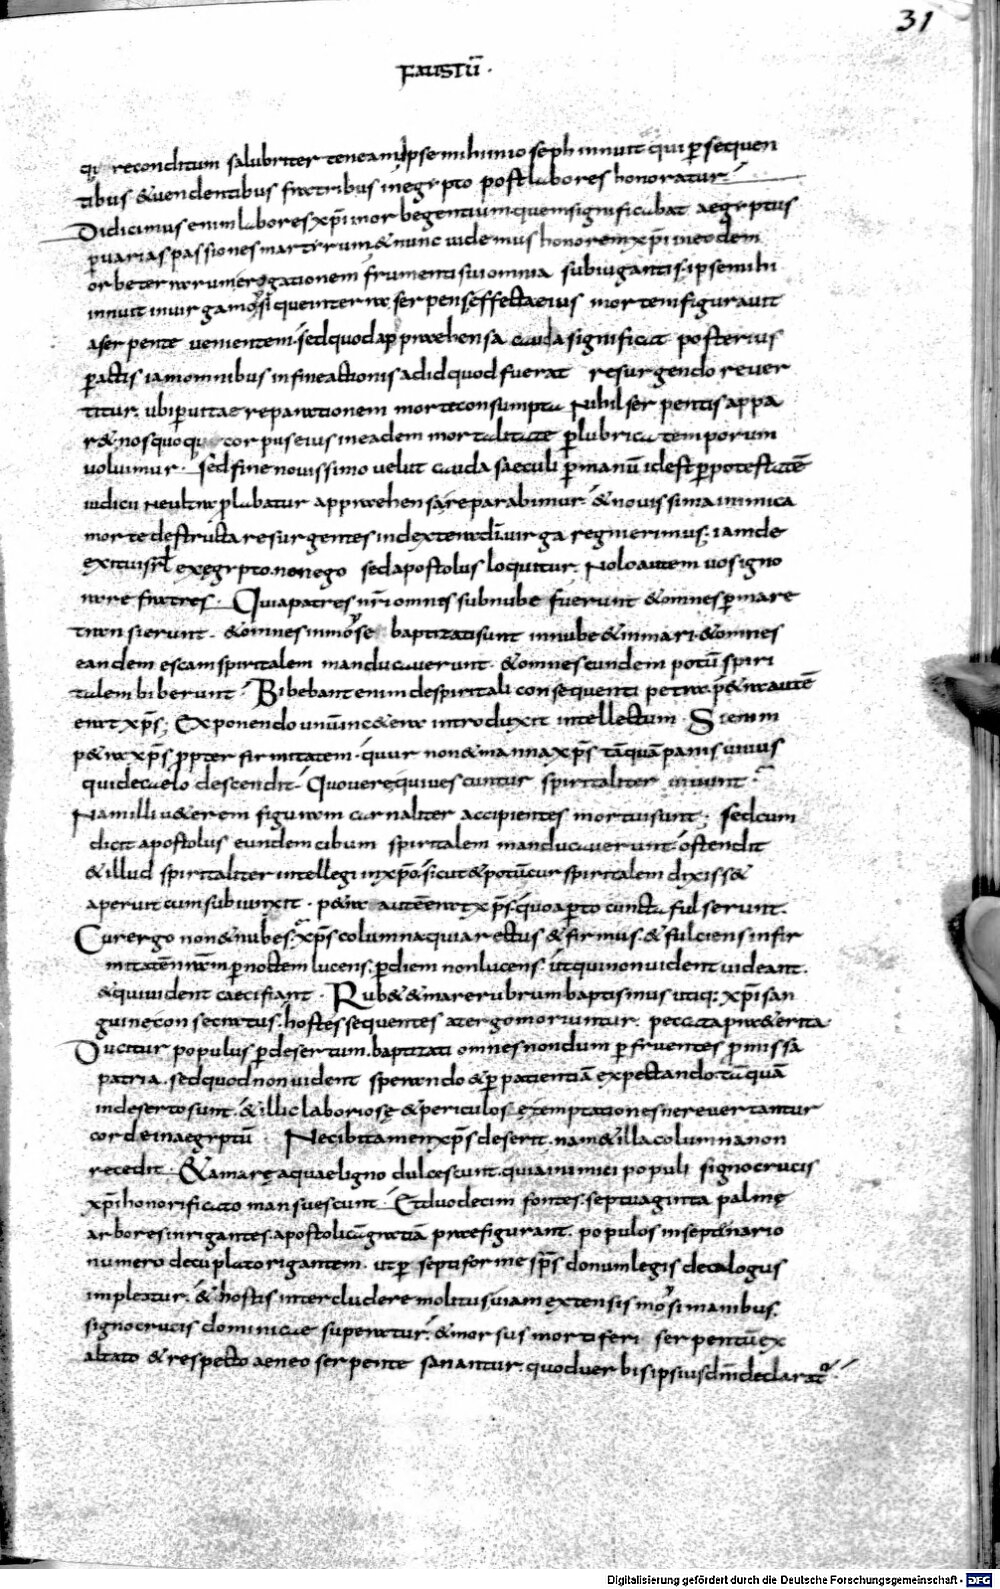 31
FAUSTŪ.
qui reconditum salubriter teneam. Ipse mihi in ioseph innuit qui p̱sequen
tibus & uendentibus fratribus in egypto post labores honoratur.
Didicimus enim labores xp̄i in orbe gentium quem significabat aegyptus
p̱ uarias passiones martyrum & nunc uidemus honorem xp̄i in eodem
orbe terrarum erogatione frumenti sui omnia subiugantis. ipse mihi
innuit in uirga moysi que in terra serpens effecta eius mortem figurauit
a serpente uenientem. sed quod app̱raehensa cauda significat posterius
p̱actis iam omnibus in fine actionis ad id quod fuerat resurgendo reuer
titur. ubi p̱ uitae reparationem morte consumpta Nihil serpentis appa
r& nos quoque corpus eius in eadem mortalitate p̱ lubrica temporum
uoluimur. sed fine nouissimo uelut cauda saeculi p̱ manū id est p̱ potestatē
iudicii Ne ultra p̱labatur appraehensa reparabimur. & nouissima inimica
morte destructa resurgentes in dextera dī uirga regni erimus. iam de
exitu isrl ex egypto non ego sed apostolus loquitur. Nolo autem uos igno
rare fratres. Quia patres nr̄i omnes sub nube fuerunt & omnes p̱ mare
transierunt. & omnes in moyse baptizati sunt in nube & in mari & omnes
eandem escam spiritalem manducauerunt. & omnes eundem potū spiri
talem biberunt. Bibebant enim de spiritali consequenti petra. p&ra autē
erat xp̄s; Exponendo unum c&era introduxit intellectum. Si enim
p&ra xp̄s propter firmitatem. quur non & manna xp̄s tāquā panis uiuus
qui de caelo descendit. Quo uere qui uescuntur spiritaliter uiuunt.
Nam illi u&erem figuram carnaliter accipientes mortui sunt. sed cum
dicit apostolus eundem cibum spiritalem manducauerunt. ostendit
& illud spiritaliter intellegi in xp̄o. sicut & potū cur spiritalem dixiss&
aperuit cum subiunxit. p&ra autē erat xp̄s. quo ap̱to cuncta fulserunt.
Cur ergo non & nubes. xp̄s columna. quia rectus & firmus. & fulciens infir
mitatē nr̄am p̱ noctem lucens. p̱ diem non lucens. ut qui non uident uideant.
& qui uident caeci fiant. Rub& & mare rubrum baptismus utiq; xp̄i san
guine consecratus. hostes sequentes a tergo moriuntur. peccata pr&erita
Ducitur populus p̱ desertum. baptizati omnes nondum p̱fruentes p̱missa
patria. sed quod non uident sperando & p̱ patientiā expectando. tāquā
in deserto sunt. & illic laboriosę & periculosę temptationes ne reuertantur
corde in aegyptū Nec ibi tamen xp̄s deserit. nam & illa columna non
recedit. & amarę aquae ligno dulcescunt. quia inimici populi signo crucis
xp̄i honorificato mansuescunt. Et duodecim fontes. septuaginta palmę
arbores inrigantes. apostolicā gratiā praefigurant. populos in septenario
numero decuplato rigantem. ut p̱ septiforme sp̄s donum legis decalogus
impleatur. & hostis intercludere molitus uiam extensis moysi manibus.
signo crucis dominicae superatur. & morsus mortiferi serpentū ex
altato & respecto aeneo serpente sanantur. quod uerbis ipsius dn̄i declarat
Digitalisierung gefördert durch die Deutsche Forschungsgemeinschaft - DFG